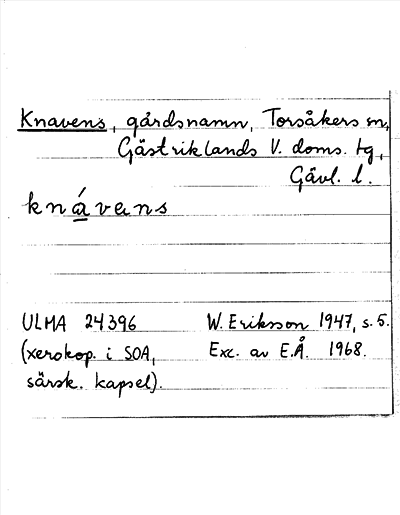 Knavens, gårdsnamn, Torsåkers sn,
Gästriklands V. doms. tg,
Gävl. l.
knávens
ULMA 24396 W. Eriksson 1947, s. 5.
(xerokop. i SOA, Exc. av E.Å. 1968.
särsk. kapsel).